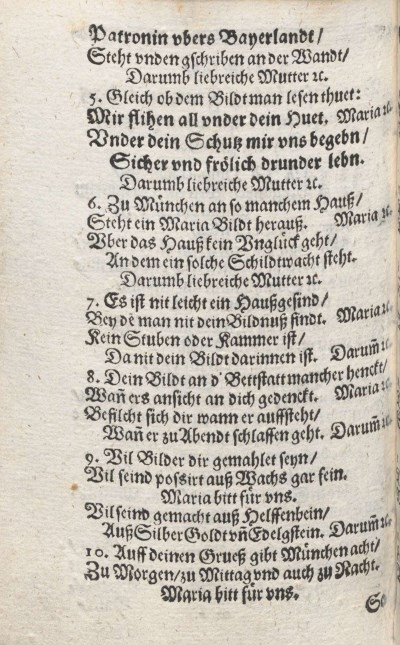 Patronin vbers Bayerlandt/
Steht vnden gschriben an der Wandt/
Darumb liebreiche Mutter ꝛc.
5. Gleich ob dem Bildt man lesen thuet:
Mir flihen all vnder dein Huet. Maria ꝛc.
Vnder dein Schutz mir vns begebn/
Sicher vnd frölich drunder lebn.
Darumb liebreiche Mutter ꝛc.
6. Zu München an so manchem Hauß/
Steht ein Maria Bildt herauß. Maria ꝛc.
Vber das Hauß kein Vnglück geht/
An dem ein solche Schildtwacht steht.
Darumb liebreiche Mutter ꝛc.
7. Es ist nit leicht ein Haußgesind/
Bey dē man nit dein Bildnuß findt. Maria ꝛc.
Kein Stuben oder Kammer ist/
Da nit dein Bildt darinnen ist. Darum̄ ꝛc.
8. Dein Bildt an d' Bettstatt mancher henckt/
Wañ ers ansicht an dich gedenckt. Maria ꝛc.
Befilcht sich dir wann er auffsteht/
Wañ er zu Abendt schlaffen geht. Darum̄ ꝛc.
9. Vil Bilder dir gemahlet seyn/
Vil seind possirt auß Wachs gar fein.
Maria bitt für vns.
Vil seind gemacht auß Helffenbein/
Auß Silber Goldt vñ Edelgstein. Darum̄ ꝛc.
10. Auff deinen Grueß gibt München acht/
Zu Morgen/zu Mittag vnd auch zu Nacht.
Maria bitt für vns.